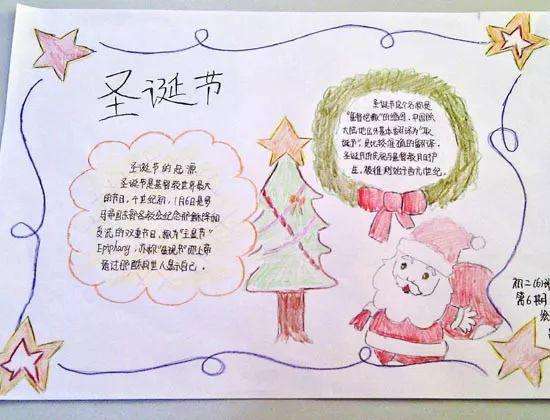 圣诞节
圣诞节的起源
圣诞节是基督教世界最大
的节日。4世纪初,1月6日是罗
马帝国东部各教会纪念耶稣降和
受洗的双重节日、称为"主显节"
Epiphany,亦称"显现节"即上帝
通过耶稣向世人显示自己。
圣诞节这个名称是
"基督弥撒"的缩写。中国
大陆地区外基本翻译为"耶
诞节",是比较准确的翻译。
圣诞节的庆祝与基督教同时产
生,
初二(6)
第6期
绘